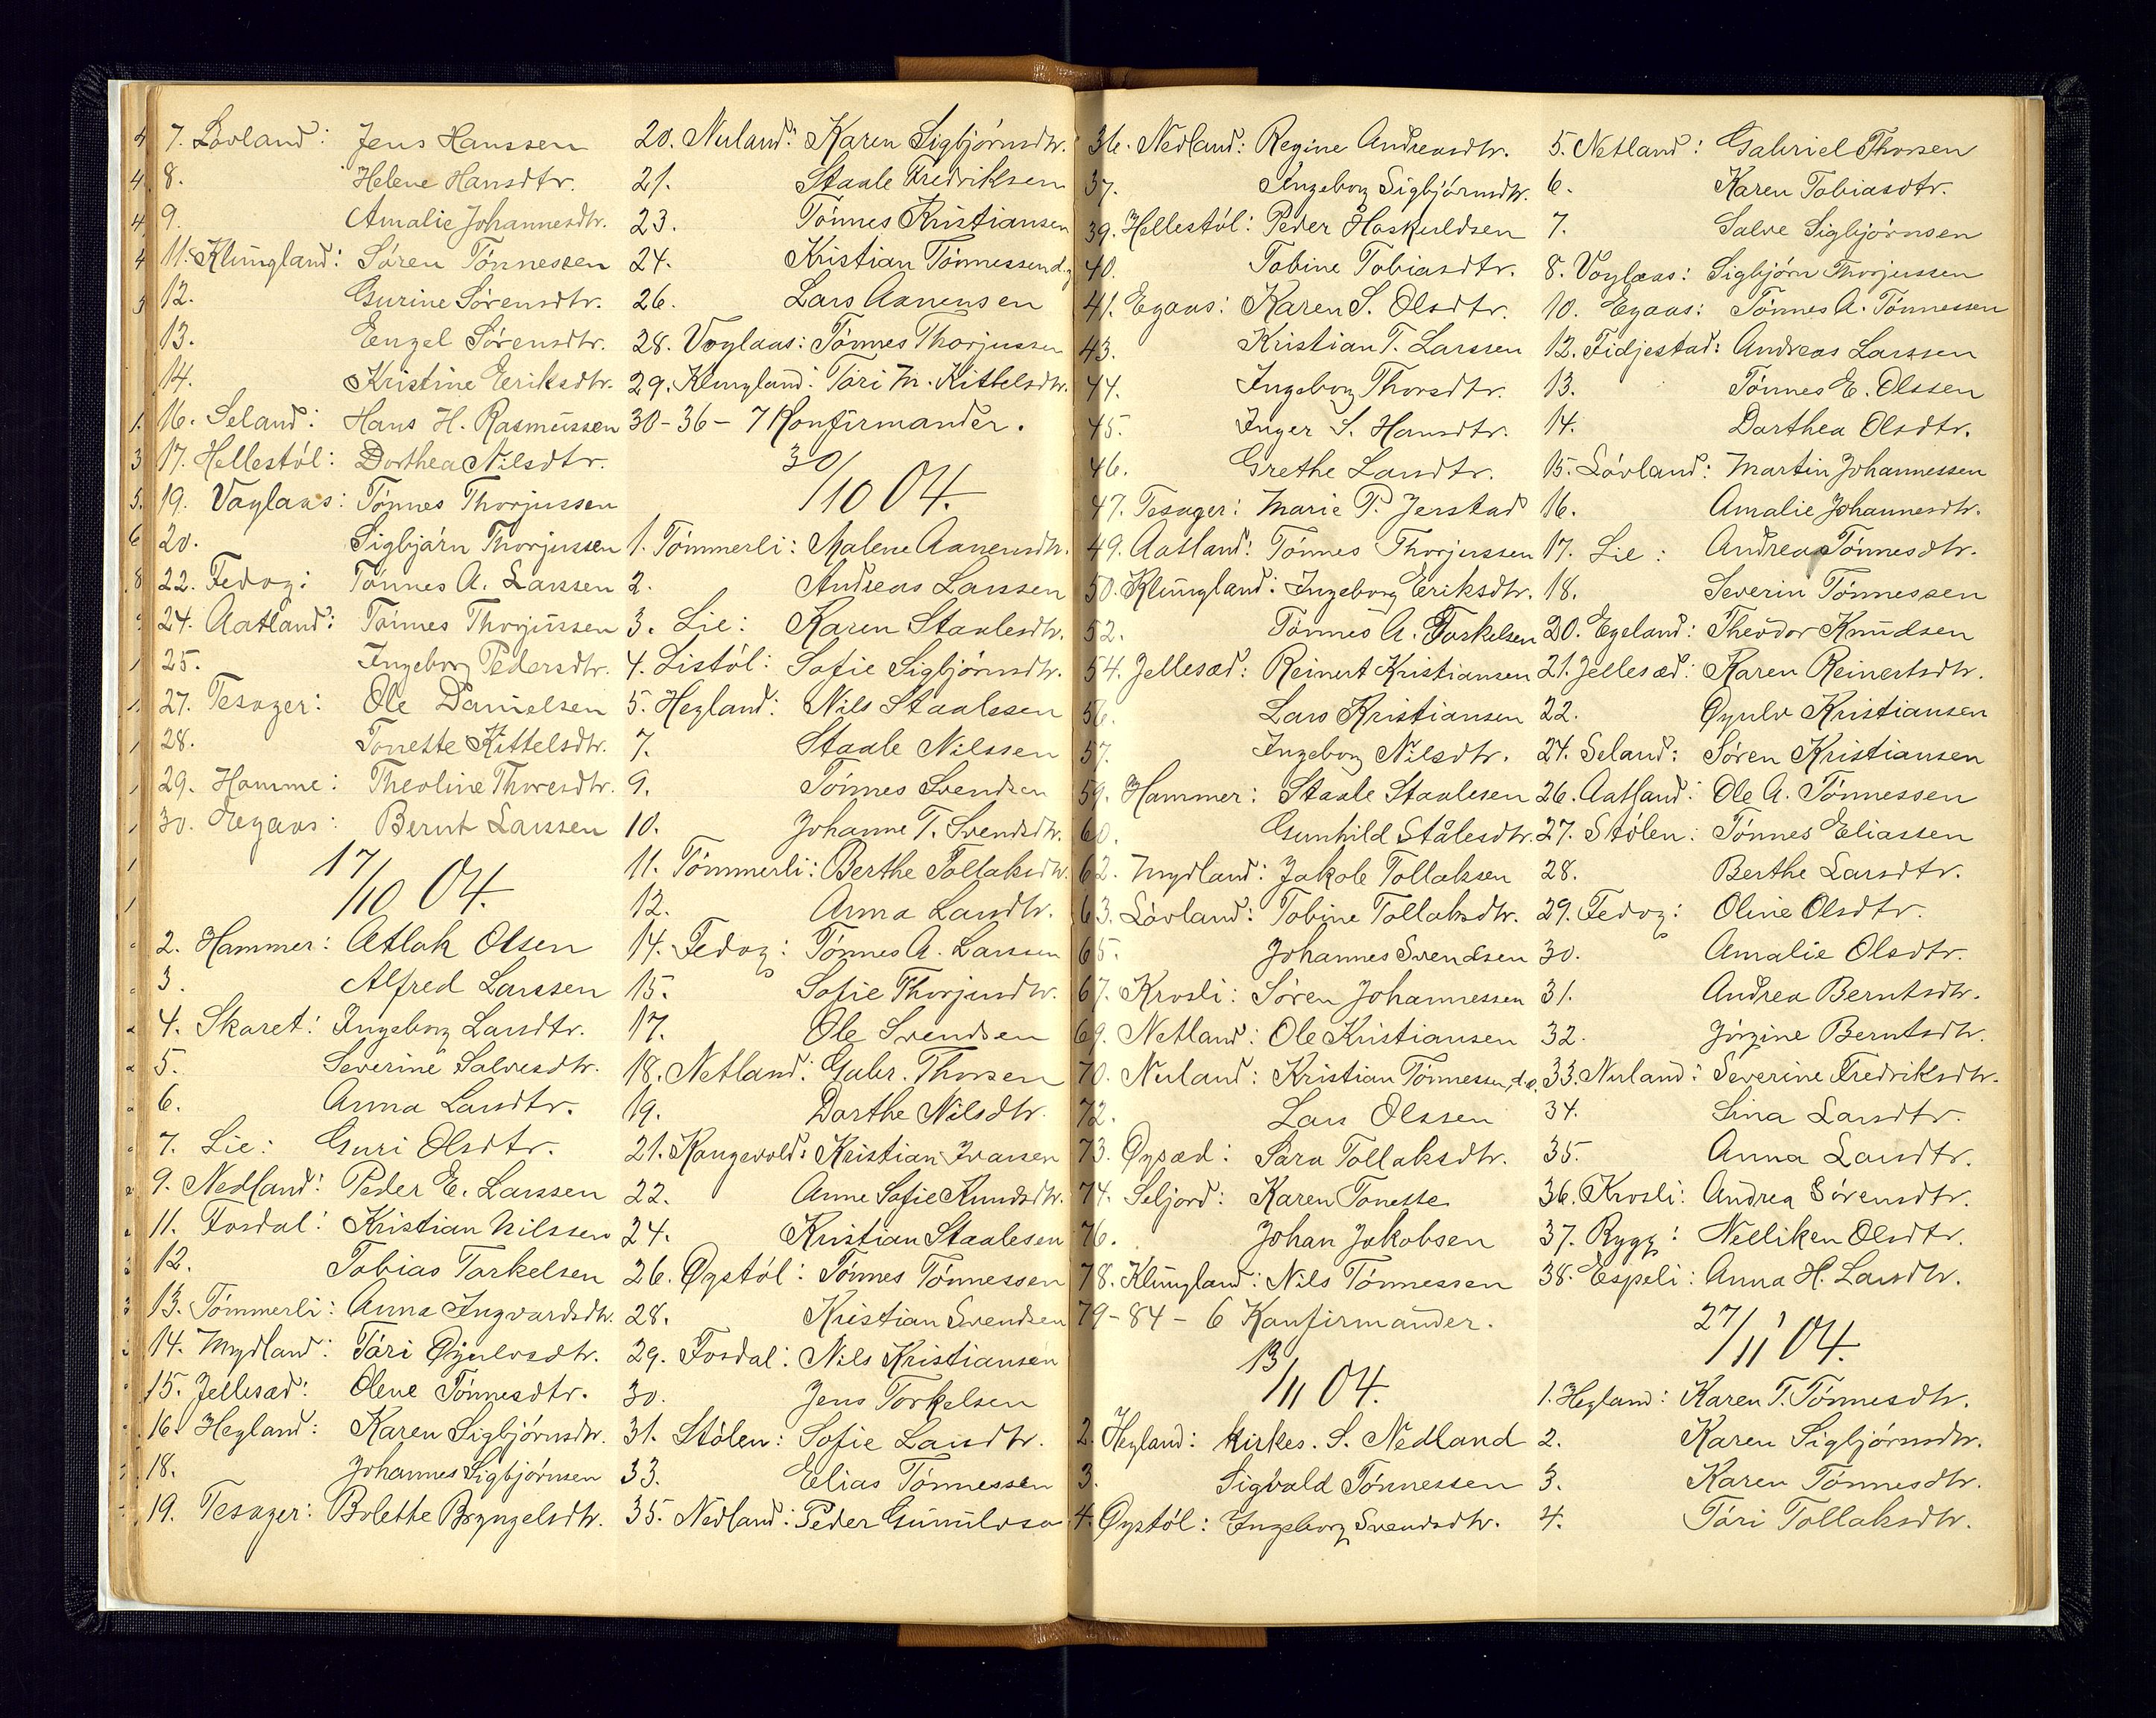 7. Lövland: Jens Hanssen
8. Helene Hansdtr.
9. Amalie Johannesdtr.
11. Klungland: Sören Tönnessen
12. Gurine Sörensdtr.
13. Engel Sörensdtr.
14. Kristine Eriksdtr.
16. Seland: Hans H. Rasmussen
17. Hellestöl: Dorthea Nilsdtr.
19. Vaylaas: Tönnes Thorjussen
20. Sigbjörn Thorjussen
22. Fedog: Tönnes A. Larssen
24. Aatland: Tönnes Thorjussen
25. Ingeborg Pedersdtr.
27. Tesager: Ole Danielsen
28. Tonette Kittelsdtr.
29. Hamme: Theoline Thoresdtr.
30. Egaas: Bernt Larssen
17/10 04.
2. Hammer: Atlak Olsen
3. Alfred Larssen
4. Skaret: Ingeborg Larsdtr.
5. Severine Salvesdtr.
6. Anna Larsdtr.
7. Lie: Guri Olsdtr.
9. Nedland: Peder E. Larssen
11. Fosdal: Kristian Nilssen
12. Tobias Tarkelsen
13. Tömmerli: Anna Ingvardsdtr.
14. Mydland: Töri Öyulvsdtr.
15. Jellesæd: Olene Tönnesdtr.
16. Hegland: Karen Sigbjörnsdtr.
18. Johannes Sigbjörnsen
19. Tesager: Bolette Bryngelsdtr.
20. Nuland: Karen Sigbjörnsdtr.
21. Staale Fredriksen
23. Tönnes Kristiansen
24. Kristian Tönnessen d.y
26. Lars Aanensen
28. Voylaas: Tönnes Thorjussen
29. Klungland: Töri M. Kittelsdtr.
30-36 - 7 Konfirmander.
30/10 04.
1. Tömmerli: Malene Aanensdtr.
2. Andreas Larssen
3. Lie: Karen Staalesdtr.
4. Listöl: Sofie Sigbjörnsdtr.
5. Hegland: Nils Staalesen
7. Staale Nilssen
9. Tönnes Svendsen
10. Johanne T. Svendsdtr.
11. Tömmerli: Berthe Tollaksdtr.
12. Anna Larsdtr.
14. Fedog: Tönnes A. Larssen
15. Sofie Thorjusdtr.
17. Ole Svendsen
18. Netland: Gabr. Thorsen
19. Dorthe Nilsdtr.
21. Rangevold: Kristian Ivarsen
22. Anne Sofie Knudsdtr.
24. Kristian Staalesen
26. Öystöl: Tönnes Tönnessen
28. Kristian Svendsen
29. Fosdal: Nils Kristiansen
30. Jens Torkelsen
31. Stölen: Sofie Larsdtr.
33. Elias Tönnessen
35. Nedland: Peder Gunulvsø
36. Nedland: Regine Andreasdtr.
37. Ingeborg Sigbjörnsdtr.
39. Hellestöl: Peder Haskuldsen
40. Tobine Tobiasdtr.
41. Egaas: Karen S. Olsdtr.
43. Kristian T. Larssen
44. Ingeborg Thorsdtr.
45. Inger S. Hansdtr.
46. Grethe Larsdtr.
47. Tesager: Marie P. Jerstad
49. Aatland: Tönnes Thorjussen
50. Klungland: Ingeborg Eriksdtr.
52. Tönnes A. Torkelsen
54. Jellesæd: Reinert Kristiansen
56. Lars Kristiansen
57. Ingeborg Nilsdtr.
59. Hammer: Staale Staalesen
60. Gunhild Stålesdtr.
62. Mydland: Jakob Tollaksen
63. Lövland: Tobine Tollaksdtr.
65. Johannes Svendsen
67. Krosli: Sören Johannessen
69. Netland: Ole Kristiansen
70. Nuland: Kristian Tönnessen, d.e.
72. Lars Olssen
73. Öysæd: Sara Tollaksdtr.
74. Seljord: Karen Tonette
76. Johan Jakobsen
78. Klungland: Nils Tönnessen
79-84 - 6 Konfirmander.
13/11 04.
2. Hegland: Kirkes. S. Nedland
3. Sigvald Tönnessen
4. Öystöl: Ingeborg Svendsdtr.
5. Netland: Gabriel Thorsen
6. Karen Tobiasdtr.
7. Salve Sigbjörnsen
8. Voylaas: Sigbjörn Thorjussen
10. Egaas: Tönnes A. Tönnessen
12. Fidjestad: Andreas Larssen
13. Tönnes E. Olssen
14. Dorthea Olsdtr.
15. Lövland: Martin Johannessen
16. Amalie Johannesdtr.
17. Lie: Andrea Tönnesdtr.
18. Severin Tönnessen
20. Egeland: Theodor Knudsen
21. Jellesæd: Karen Reinertsdtr.
22. Öyulv Kristiansen
24. Seland: Sören Kristiansen
26. Aatland: Ole A. Tönnessen
27. Stölen: Tönnes Eliassen
28. Berthe Larsdtr.
29. Fedog: Oline Olsdtr.
30. Amalie Olsdtr.
31. Andrea Berntsdtr.
32. Jörgine Berntsdtr.
33. Nuland: Severine Fredriksdtr.
34. Sina Larsdtr.
35. Anna Larsdtr.
36. Krosli: Andrea Sörensdtr.
37. Rygg: Nelliken Olsdtr.
38. Espeli: Anna H. Larsdtr.
27/11 04.
1. Hegland: Karen T. Tönnesdtr.
2. Karen Sigbjörnsdtr.
3. Karen Tönnesdtr.
4. Töri Tollaksdtr.